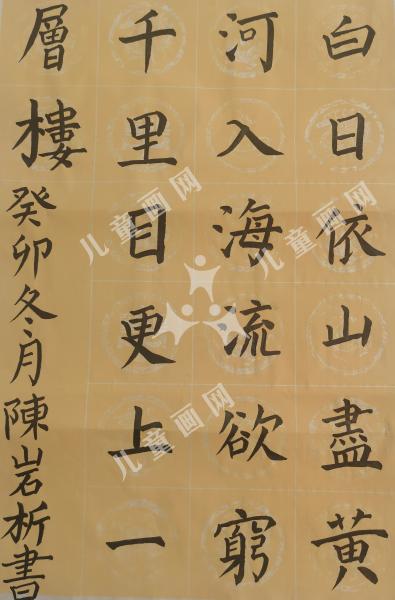 白日依山盡黄
河入海流欲窮
千里目更上一
層樓癸卯冬月陳岩析書
儿童画网
儿童画网
儿童画网